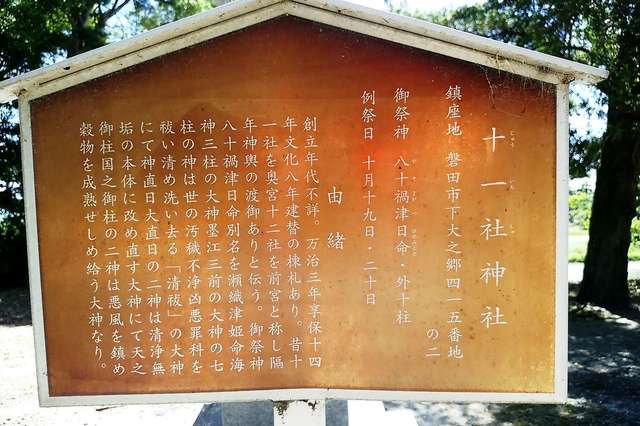 十一社神社
鎮座地 磐田市下大之郷四一五番地
の二
御祭神 八十禍津日命・外十柱
例祭日 十月十九日・二十日
由緒
創立年代不詳。万治三年享保十四
年文化八年建替の棟札あり。昔十
一社を奥宮十二社を前宮と称し隔
年神輿の渡御ありと伝う。御祭神
八十禍津日命別名を瀬織津姫命海
神三柱の大神墨江三前の大神の七
柱の神は世の汚穢不浄凶悪罪科を
祓い清め洗い去る「清祓」の大神
にて神直日大直日の二神は清浄無
垢の本体に改め直す大神にて天之
御柱国之御柱の二神は悪風を鎮め
穀物を成熟せしめ給う大神なり。